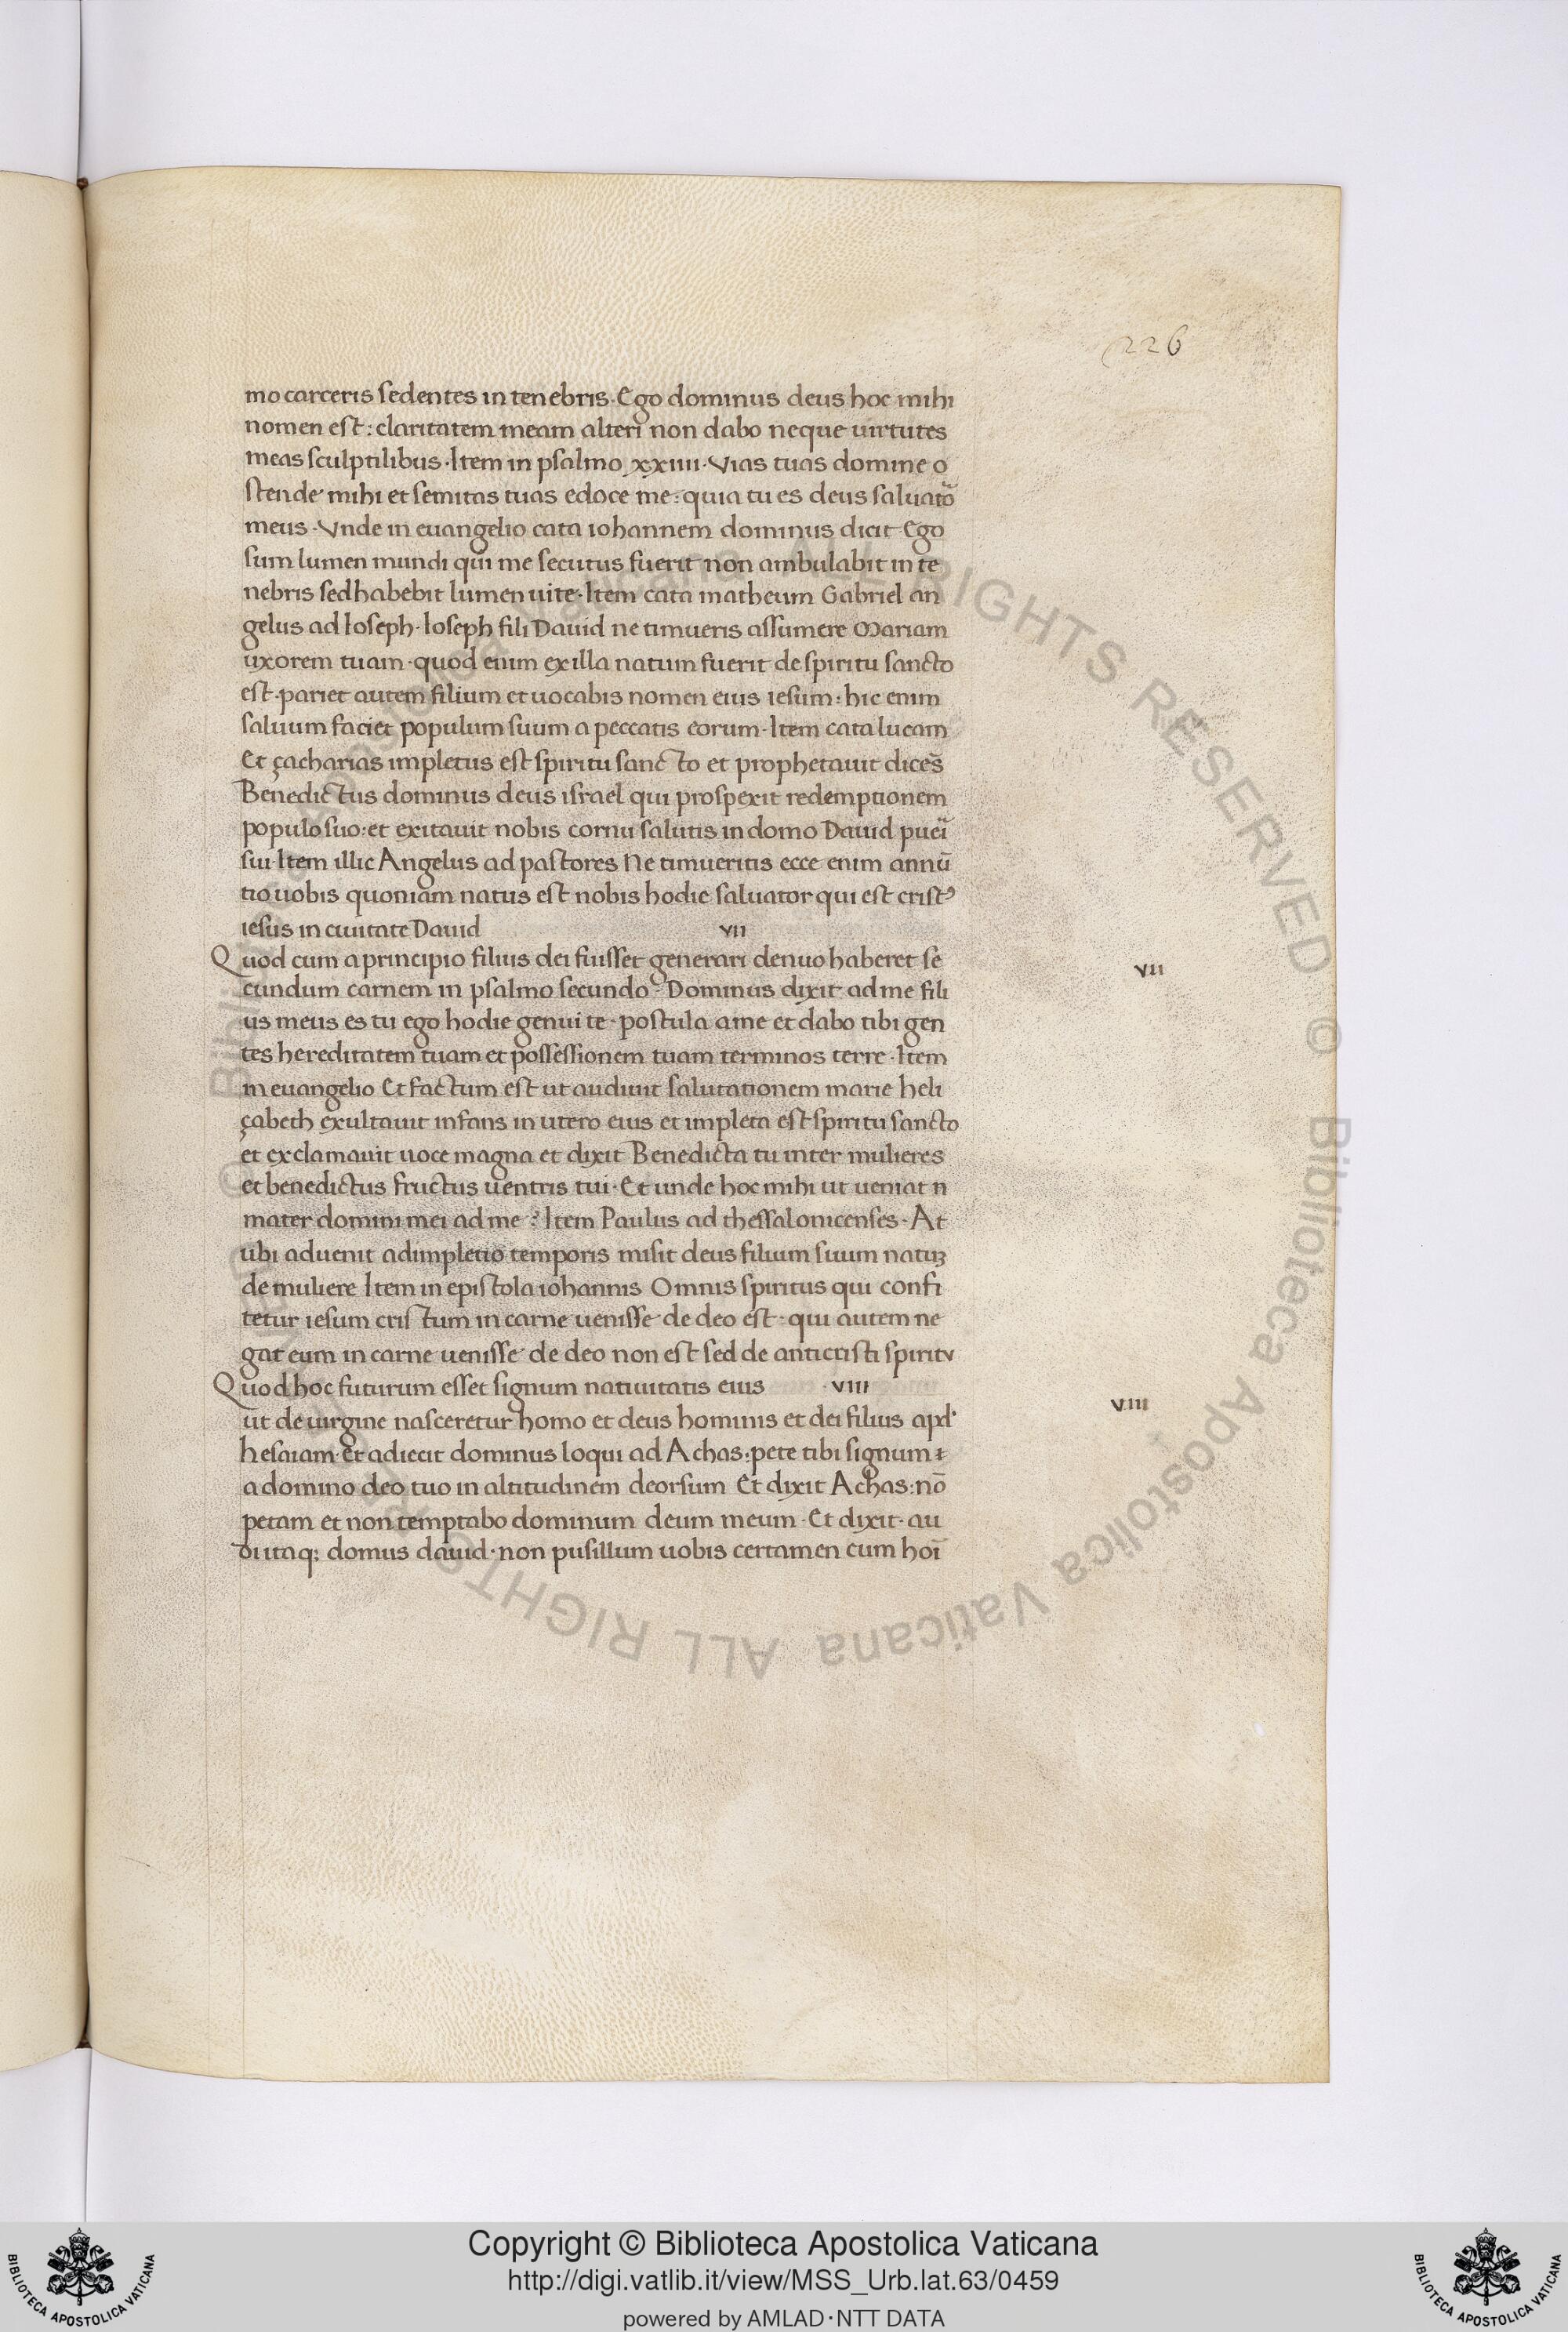 226
mo carceris sedentes in tenebris· Ego dominus deus hoc mihi
nomen est: claritatem meam alteri non dabo neque uirtutes
meas sculptilibus· Item in psalmo xxiiii· Vias tuas domine o
stende mihi et semitas tuas edoce me: quia tu es deus saluato᷑
meus· Vnde in euangelio cata iohannem dominus dicit Ego
sum lumen mundi qui me secutus fuerit non ambulabit in te
nebris sed habebit lumen uite· Item cata matheum Gabriel an
gelus ad Ioseph· Ioseph fili Dauid ne timueris assumere Mariam
uxorem tuam· quod enim ex illa natum fuerit de spiritu sancto
est· pariet autem filium et uocabis nomen eius iesum: hic enim
saluum faciet populum suum a peccatis eorum· Item cata lucam
Et çacharias impletus est spiritu sancto et prophetauit dice᷑s
Benedictus dominus deus israel qui prospexit redemptionem
populo suo: et exitauit nobis cornu salutis in domo Dauid puei᷑
sui· Item illic Angelus ad pastores Ne timueritis ecce enim annū
tio uobis quoniam natus est nobis hodie saluator qui est cristꝰ
iesus in ciuitate Dauid vii
Quod cum a principio filius dei fuisset generari denuo haberet se
vii
cundum carnem in psalmo secundo· Dominus dixit ad me fili
us meus es tu ego hodie genui te· postula a me et dabo tibi gen
tes hereditatem tuam et possessionem tuam terminos terre· Item
in euangelio Et factum est ut audiuit salutationem marie heli
çabeth exultauit infans in utero eius et impleta est spiritu sancto
et exclamauit uoce magna et dixit Benedicta tu inter mulieres
et benedictus fructus uentris tui· Et unde hoc mihi ut ueniat n
mater domini mei ad me? Item Paulus ad thessalonicenses· At
ubi aduenit adimpletio temporis misit deus filium suum natuꝫ
de muliere Item in epistola iohannis Omnis spiritus qui confi
tetur iesum cristum in carne uenisse de deo est: qui autem ne
gat eum in carne uenisse de deo non est sed de anticristi spiritv
Quod hoc futurum esset signum natiuitatis eius ·viii
viii
ut de uirgine nasceretur homo et deus hominis et dei filius apd᷑
hesaiam· et adiecit dominus loqui ad Achas: pete tibi signum
a domino deo tuo in altitudinem deorsum Et dixit Achas: nō
petam et non temptabo dominum deum meum· Et dixit· au
di itaq; domus dauid· non pusillum uobis certamen cum hoī
© Biblioteca Apostolica Vaticana ALL RIGHTS RESERVED © Biblioteca Apostolica Vaticana ALL RIGHTS RESERVED
Copyright © Biblioteca Apostolica Vaticana
http://digi.vatlib.it/view/MSS_Urb.lat.63/0459
powered by AMLAD·NTT DATA
BIBLIOTECA APOSTOLICA VATICANA
BIBLIOTECA APOSTOLICA VATICANA